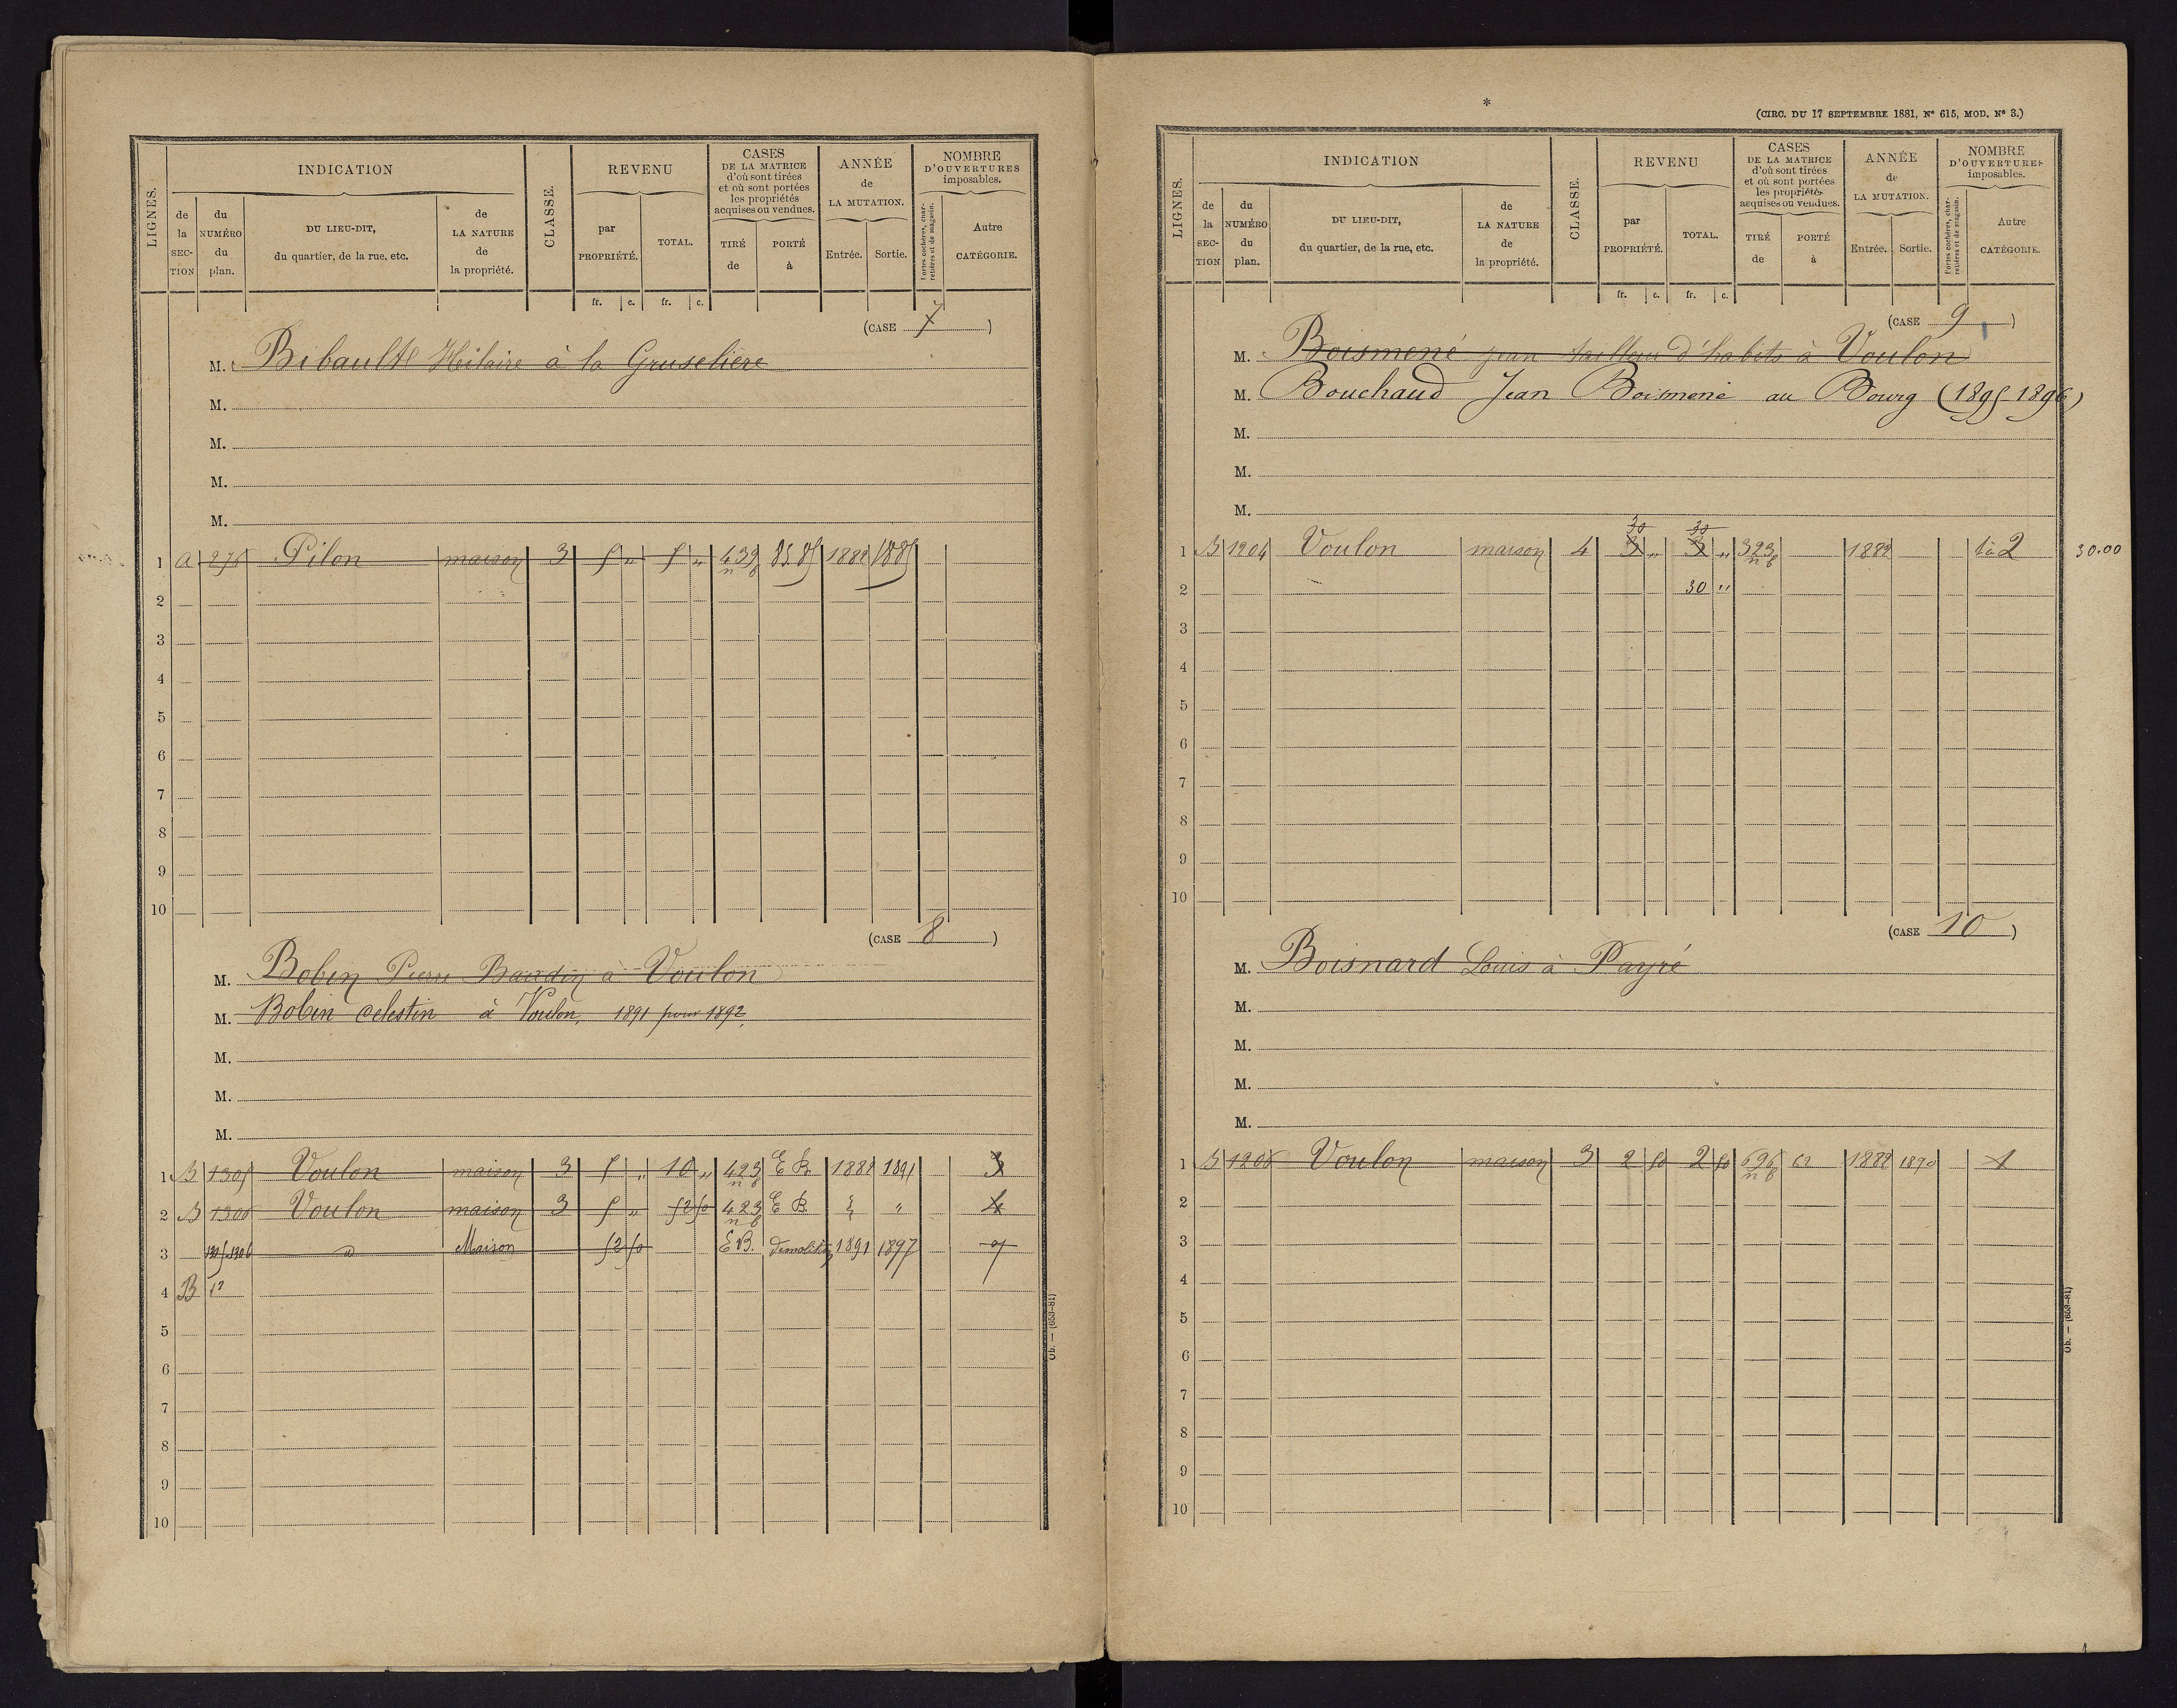 LIGNES.
INDICATION
de la SECTION
du NUMÉRO du plan.
DU LIEU-DIT, du quartier, de la rue, etc.
de LA NATURE de la propriété.
CLASSE.
REVENU
par PROPRIÉTÉ.
TOTAL.
CASES DE LA MATRICE d'où sont tirées et où sont portées les propriétés acquises ou vendues.
TIRÉ de
PORTÉ à
ANNÉE de LA MUTATION.
Entrée.
Sortie.
NOMBRE D'OUVERTURES imposables.
Portes cochères, charretières et de magasin.
Autre CATÉGORIE.
fr. c. fr. c.
(CASE 7)
M. Bibault Hilaire à la Gruselière
M.
M.
M.
M.
1 A 276 Pilon maison 3 5 " 5 " 439 1882 1885
2
3
4
5
6
7
8
9
10
(CASE 8)
M. Bobin Pierre Baudin à Voulon
M. Bobin Celestin à Voulon, 1891 pour 1892
M.
M.
M.
1 B 1305 Voulon maison 3 5 " 10 " 423 E B. 1882 1891 3
2 B 1306 Voulon maison 3 5 " 52 50 423 E B. " 4
3 1305.1306 " Maison 52 50 E B. demolition 1891 1897 7
4 B
5
6
7
8
9
10
Ob. — (653-81)
*
(CIRC. DU 17 SEPTEMBRE 1881, N° 615, MOD. N° 3.)
LIGNES.
INDICATION
de la SECTION
du NUMÉRO du plan.
DU LIEU-DIT, du quartier, de la rue, etc.
de LA NATURE de la propriété.
CLASSE.
REVENU
par PROPRIÉTÉ.
TOTAL.
CASES DE LA MATRICE d'où sont tirées et où sont portées les propriétés acquises ou vendues.
TIRÉ de
PORTÉ à
ANNÉE de LA MUTATION.
Entrée.
Sortie.
NOMBRE D'OUVERTURES imposables.
Portes cochères, charretières et de magasin.
Autre CATÉGORIE.
fr. c. fr. c.
(CASE 9)
M. Boismené jean tailleur d'habits à Voulon
M. Bouchaud Jean Boismené au Bourg (1895-1896)
M.
M.
M.
30 30
1 B 1204 Voulon maison 4 3 " 3 " 323 1882 2 30.00
2 30 "
3
4
5
6
7
8
9
10
(CASE 10)
M. Boisnard Louis à Payré
M.
M.
M.
M.
1 B 1206 Voulon maison 3 2 50 2 50 696 62 1882 1890 1
2
3
4
5
6
7
8
9
10
Ob. — (653-81)